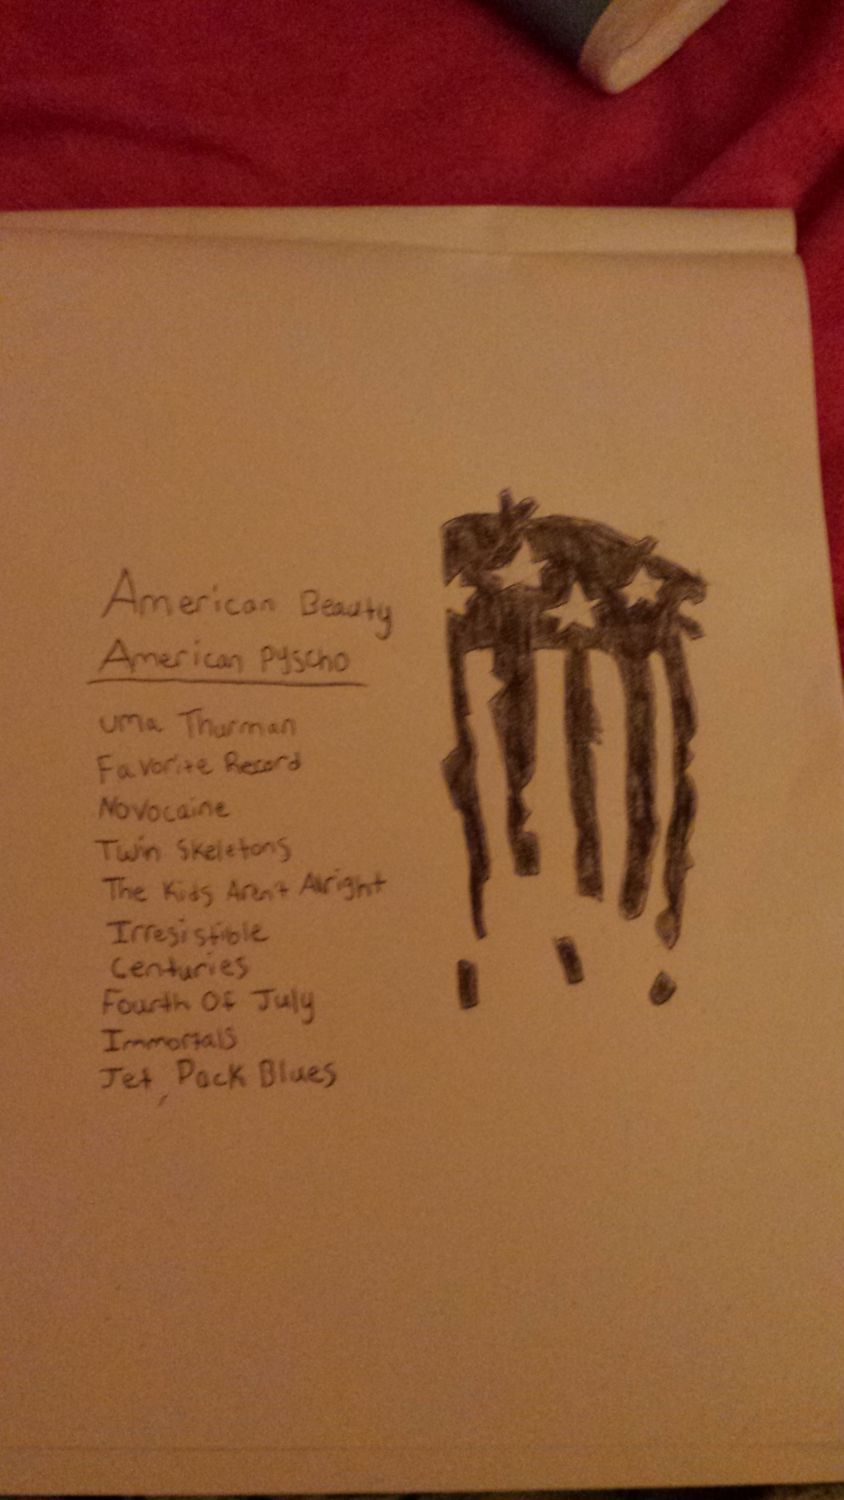 American Beauty
American Pyscho
Uma Thurman
Favorite Record
Novocaine
Twin Skeletons
The Kids Aren't Alright
Irresistible
Centuries
Fourth Of July
Immortals
Jet Pack Blues